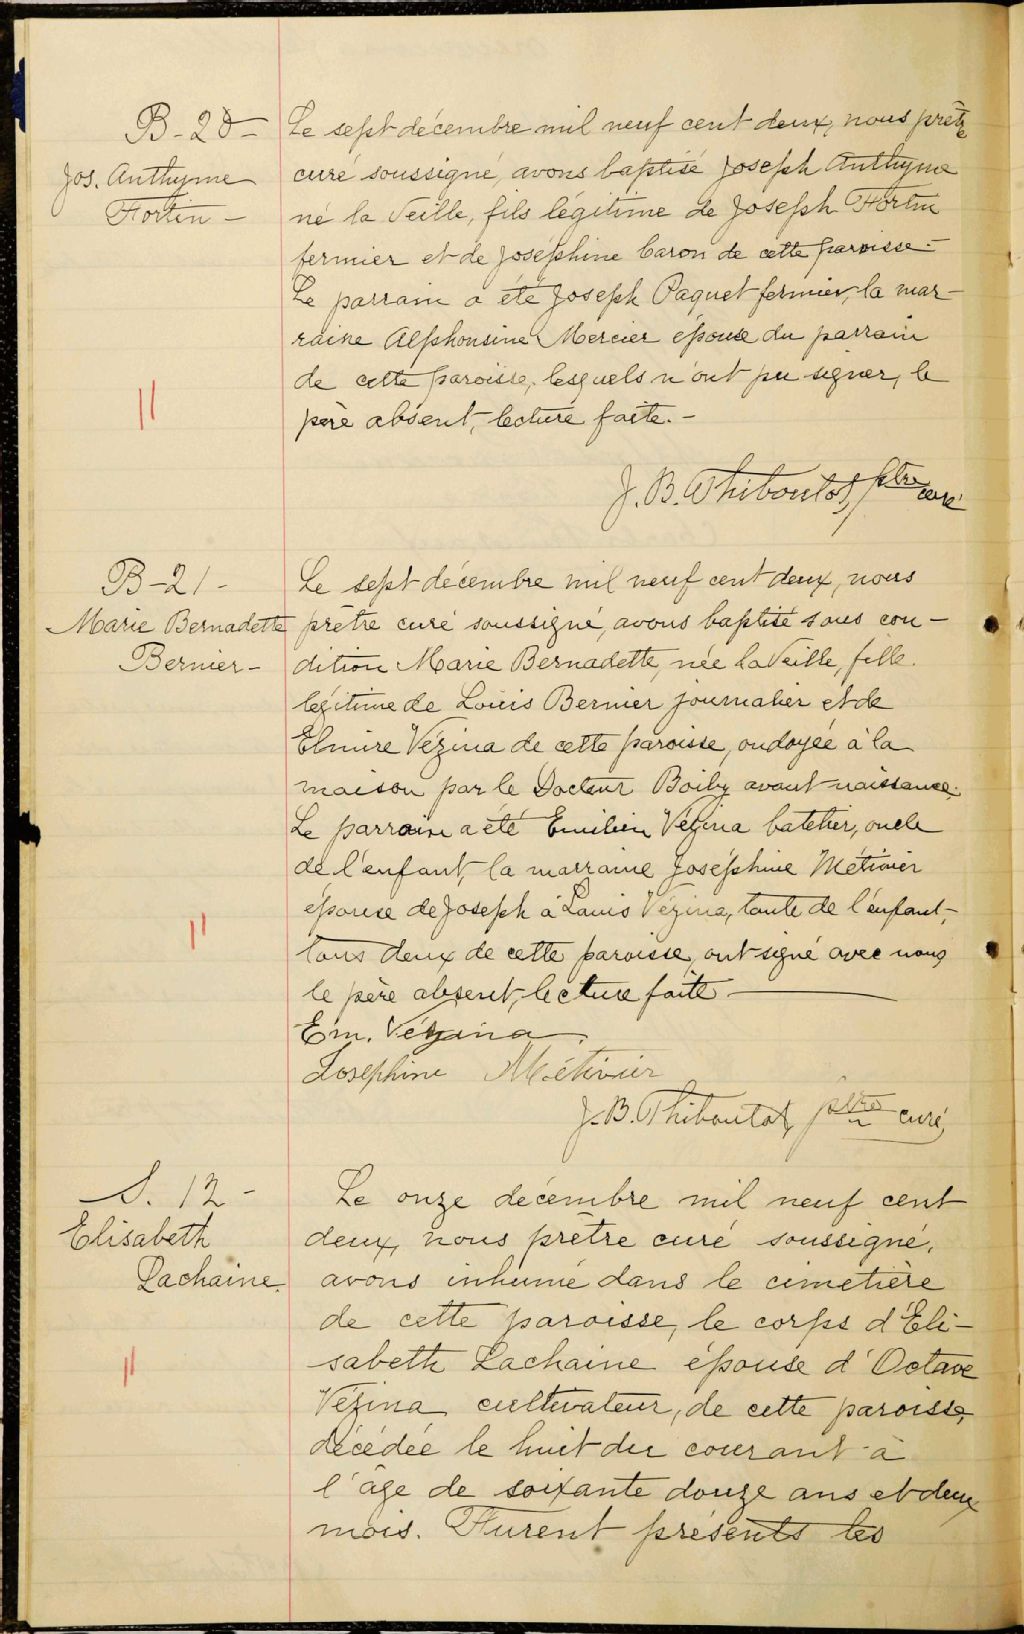 B-20-
Jos. Anthyme
Fortin -
Le sept décembre mil neuf cent deux, nous prêtre
curé soussigné, avons baptisé Joseph Anthyme
né la veille, fils légitime de Joseph Fortin
fermier et de Joséphine Caron de cette paroisse.-
Le parrain a été Joseph Paquet fermier, la mar-
raine Alphonsine Mercier épouse du parrain
de cette paroisse, lesquels n'ont pu signer, le
père absent, lecture faite.-
J. B. Thiboutot, ptre curé
B-21-
Marie Bernadette
Bernier-
Le sept décembre mil neuf cent deux, nous
prêtre curé soussigné, avons baptisé sous con-
dition Marie Bernadette, née la veille, fille
légitime de Louis Bernier journalier et de
Elmire Vézina de cette paroisse, ondoyée à la
maison par le Docteur Boily avant naissance.
Le parrain a été Emilien Vézina batelier, oncle
de l'enfant, la marraine Joséphine Métivier
épouse de Joseph à Louis Vézina, tante de l'enfant,
tous deux de cette paroisse, ont signé avec nous
le père absent, lecture faite
Em. Vézina
Josephine Métivier
J. B. Thiboutot, ptre curé
S. 12-
Elisabeth
Lachaine.
Le onze décembre mil neuf cent
deux, nous prêtre curé soussigné,
avons inhumé dans le cimetière
de cette paroisse, le corps d'Eli-
sabeth Lachaine épouse d'Octave
Vézina cultivateur, de cette paroisse,
décédée le huit du courant à
l'âge de soixante douze ans et deux
mois. Furent présents les